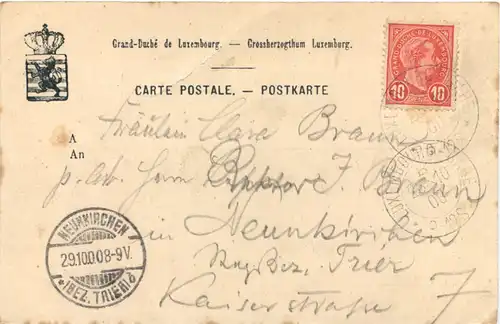 Grand-Duché de Luxembourg. — Grossherzogthum Luxemburg.
CARTE POSTALE. — POSTKARTE
10 10
A
An
Fräulein Clara Braun
p. Adr. Herrn Rektor J. Braun
in Neunkirchen
Reg. Bez. Trier
Kaiserstraße 7
NEUNKIRCHEN
29.10.00.8-9V.
*(BEZ. TRIER)